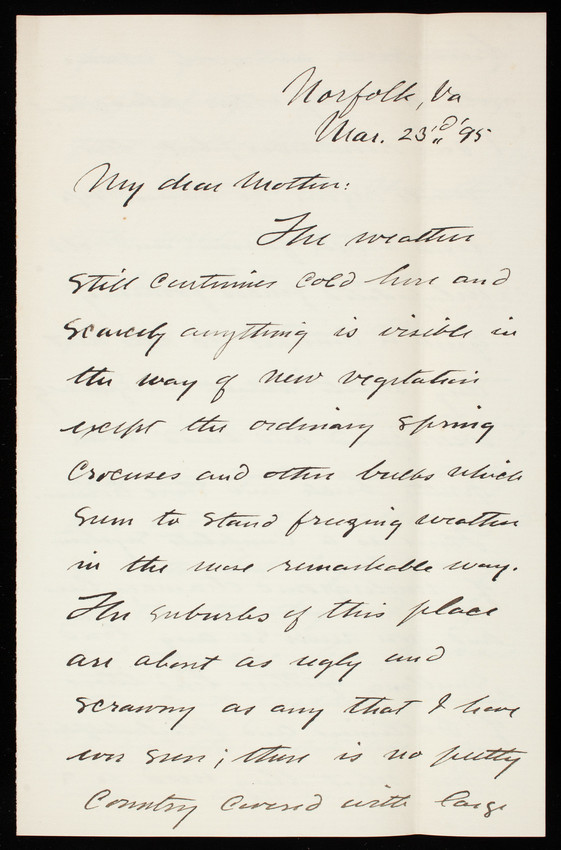 Norfolk, Va
Mar. 23'd' 95
My dear Mother:
The weather
still continues cold here and
scarcely anything is visible in
the way of new vegetation
except the ordinary spring
crocuses and other bulbs which
seem to stand freezing weather
in the most remarkable way.
The suburbs of this place
are about as ugly and
scrawny as any that I have
ever seen; there is no pretty
country covered with large